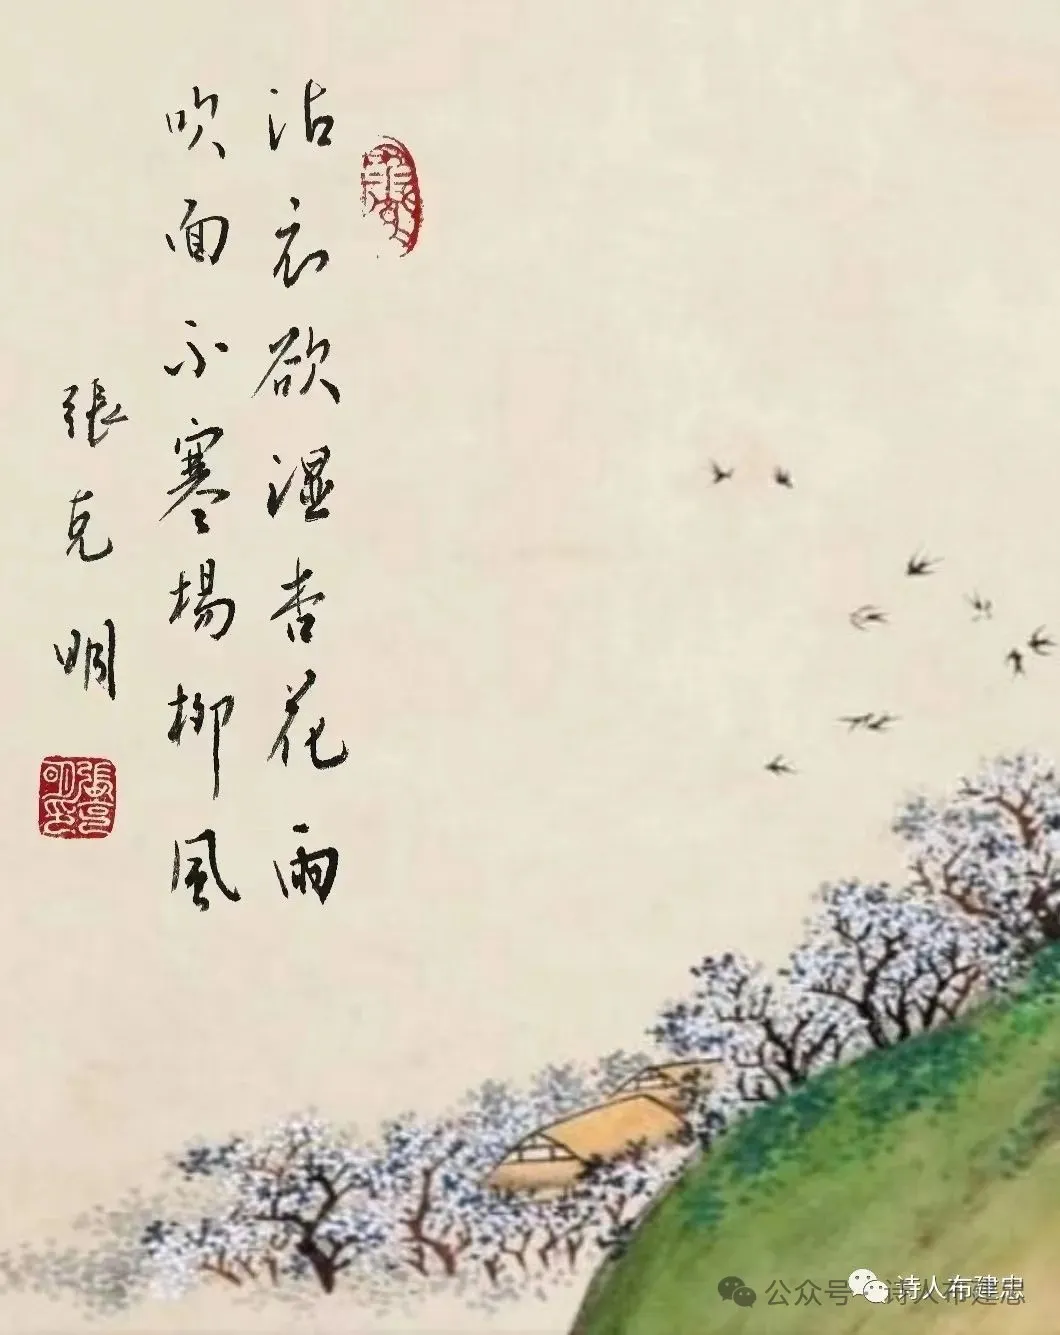 沾衣欲湿杏花雨
吹面不寒杨柳风
張克明
公众号·诗人布建忠
诗人布建忠